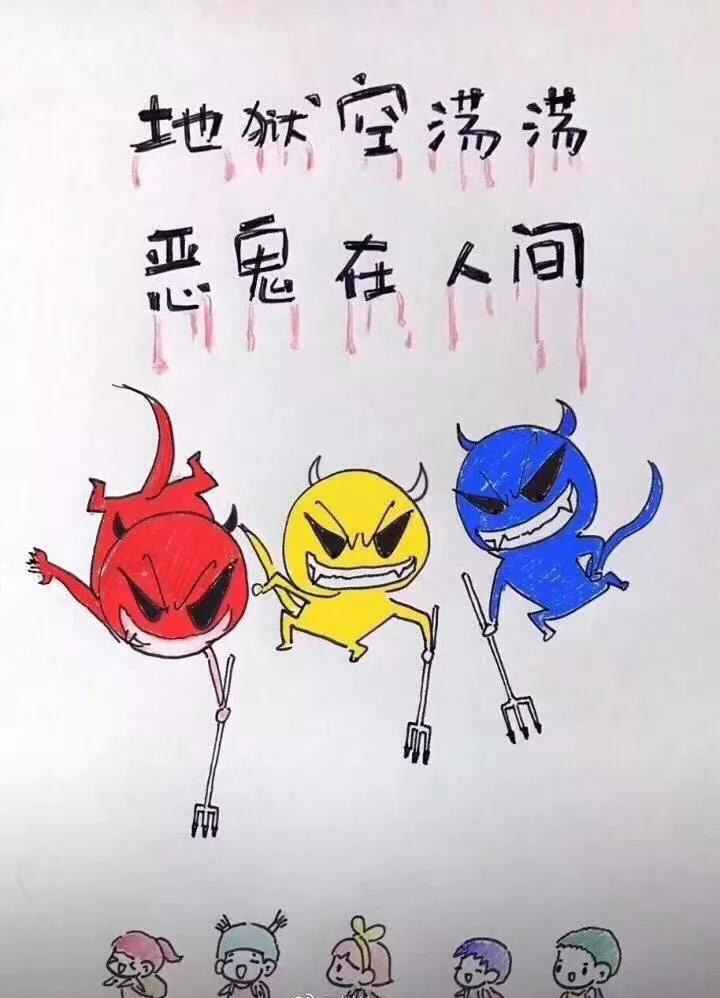 地狱空荡荡
恶鬼在人间